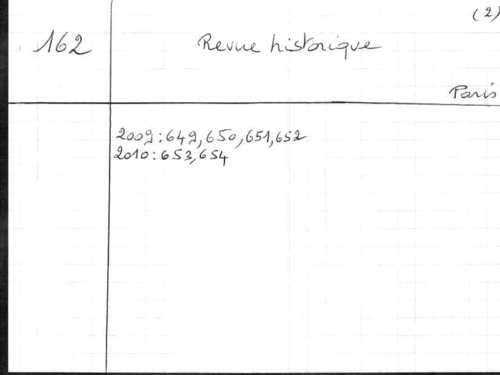 (2)
162 Revue historique
Paris
2009:649,650,651,652
2010:653,654